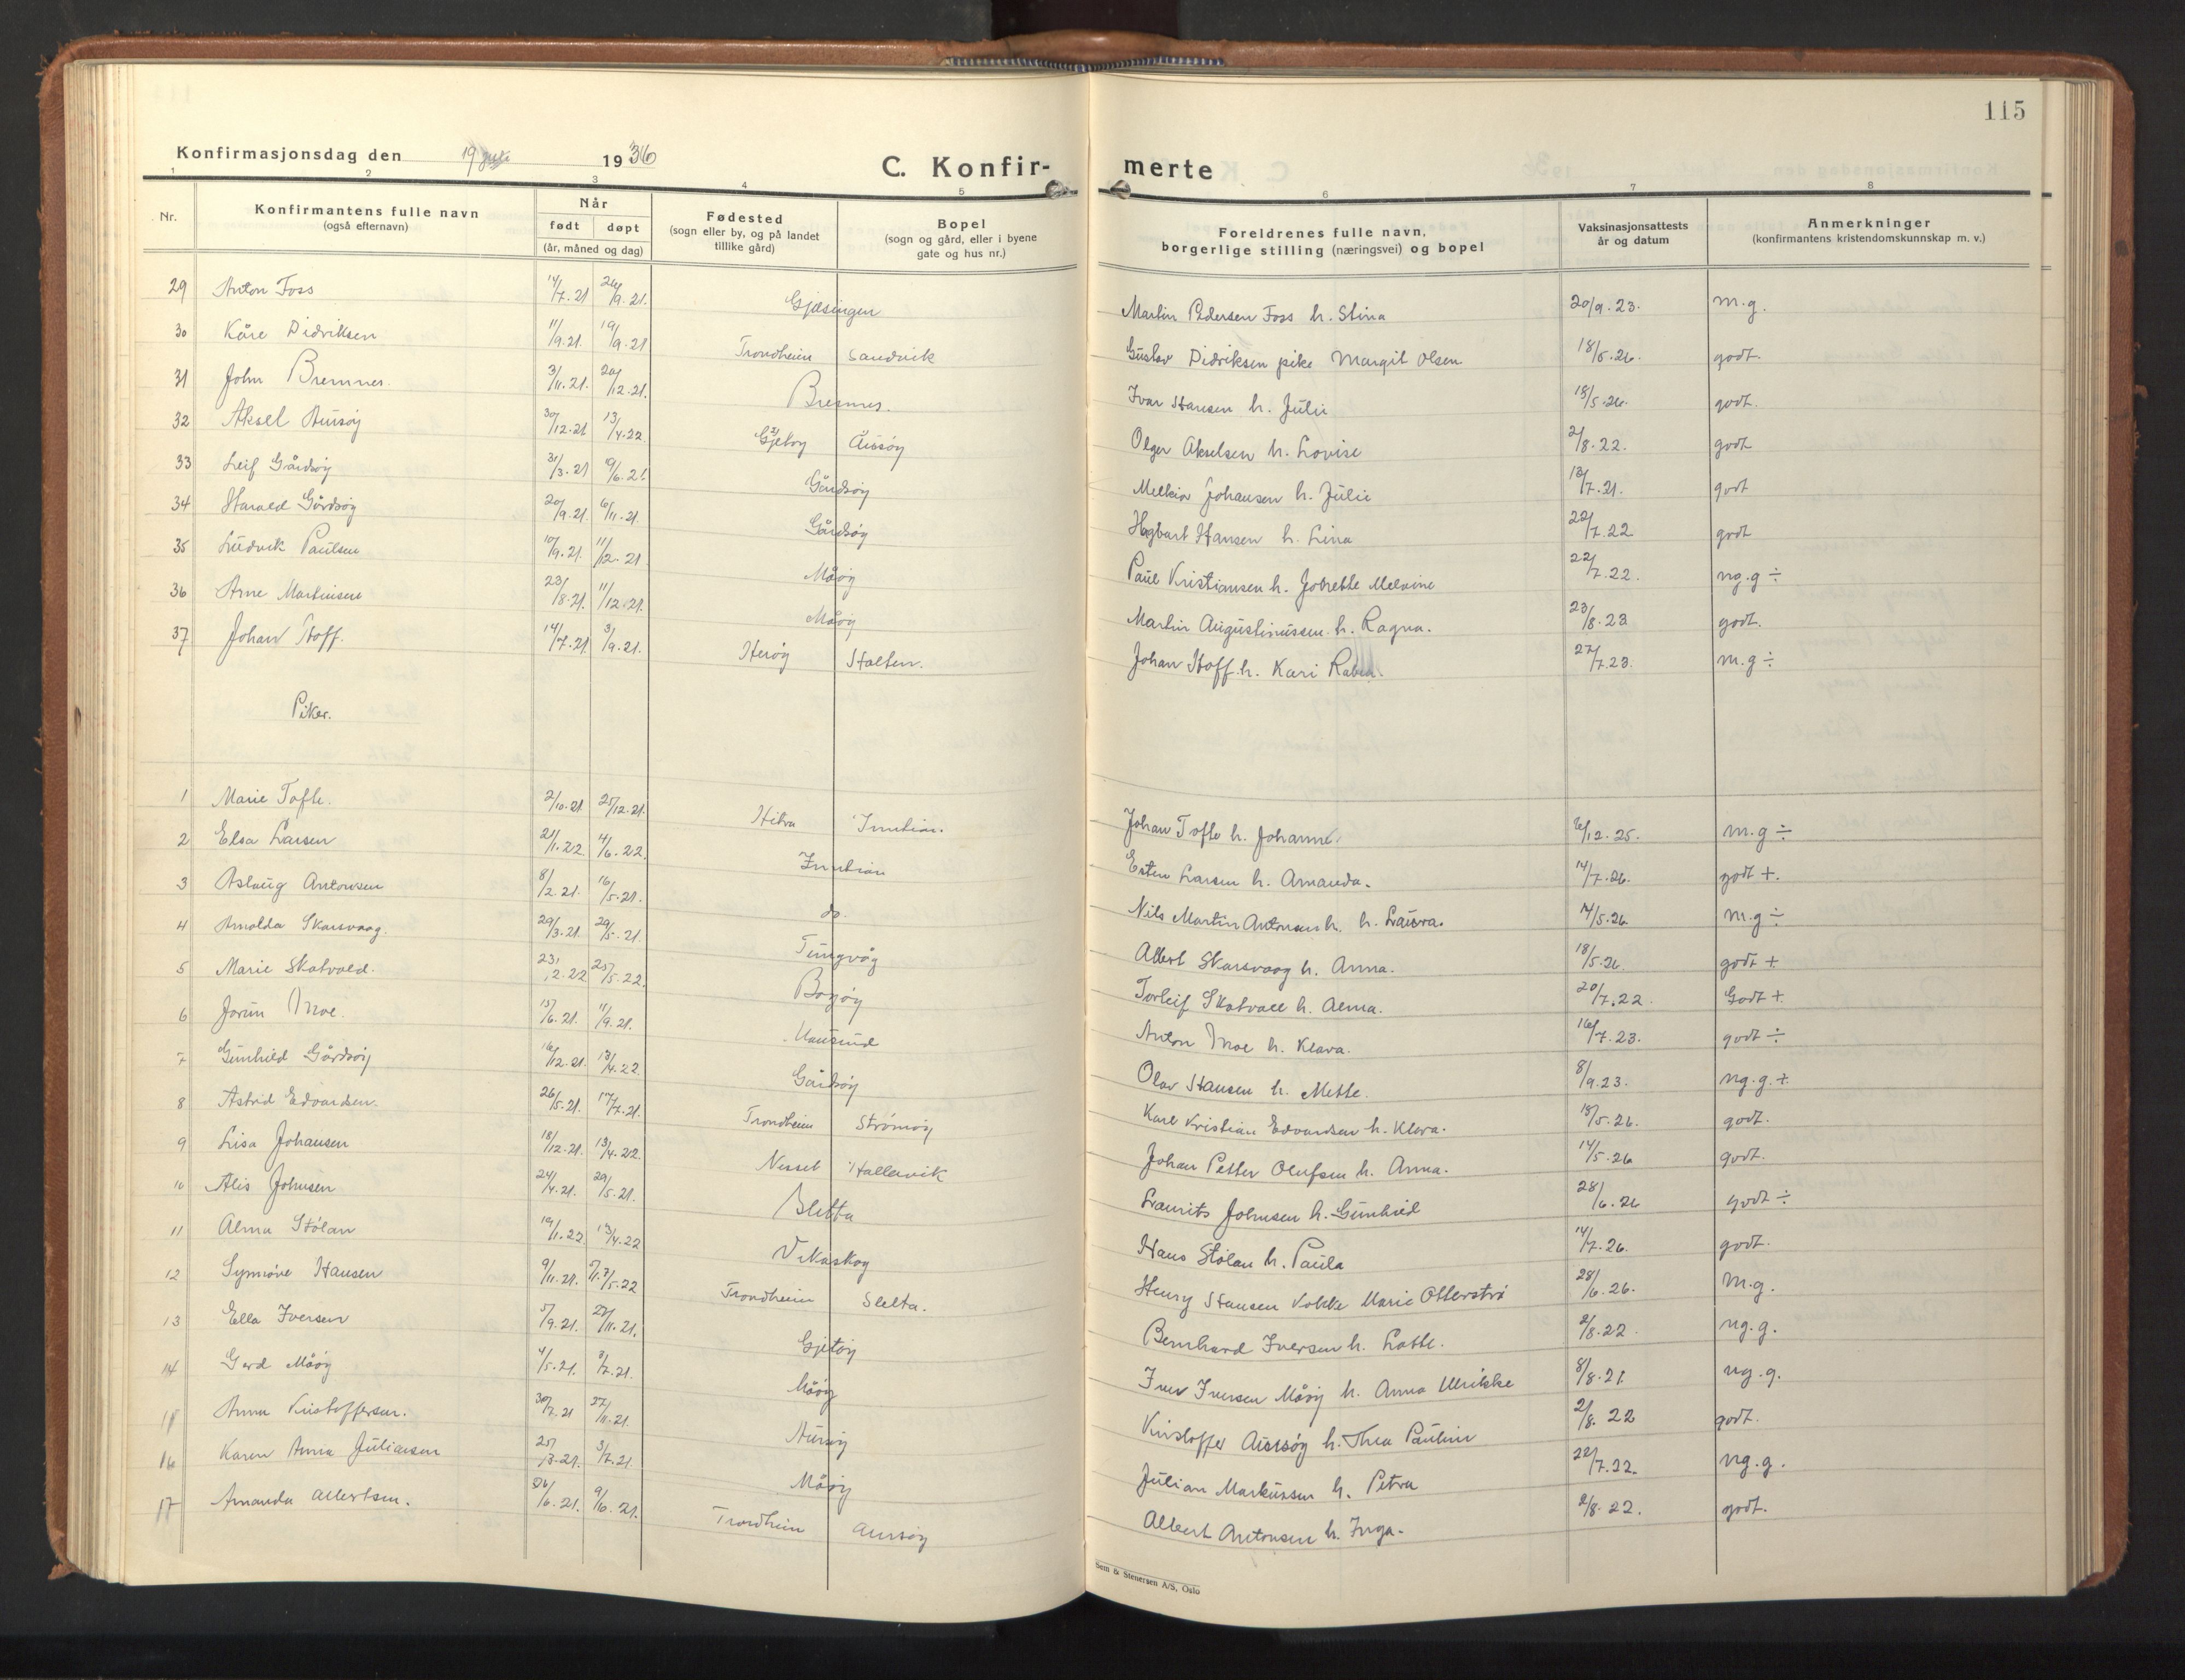 115
Konfirmasjonsdag den 19 1936
C. Konfir-
merte
1 2 3 4 5 6 7 8
Nr.
Konfirmantens fulle navn
(også efternavn)
Når
født døpt
(år, måned og dag)
Fødested
(sogn eller by, og på landet
tillike gård)
Bopel
(sogn og gård, eller i byene
gate og hus nr.)
Foreldrenes fulle navn,
borgerlige stilling (næringsvei) og bopel
Vaksinasjonsattests
år og datum
Anmerkninger
(konfirmantens kristendomskunnskap m. v.)
29 Anton Foss 14/7.21 /9.21. Gjæsingen Martin Pedersen Foss h. Stina 20/9.23. m.g.
30 Kåre Didriksen 11/9.21. 19/9.21 Trondheim Sandvik Gustav Didriksen pike Margit Olsen 18/5.26. godt.
31 John Bremnes. 3/11.21. 20/12.21. Bremnes. Ivar Hansen h. Julie 18/5.26. godt.
32 Aksel Aursøy 30/12.21 13/4.22 Gjetøy Aursøy Olger Akselsen h. Lovise 2/8.22. godt
33 Leif Gårdsøy 31/3.21 19/6.21. Gårdsøy Melkior Johansen h. Julie /7.21. godt
34 Harald Gårdsøy 20/9.21 6/11.21. Gårdsøy Hagbart Hansen h. Lina 22/7.22 godt
35 Ludvik Paulsen 10/9.21. 11/12.21 Måøy Paul Kristiansen h. Melvine 22/7.22. ng.g ÷
36 Arne Martinsen 23/8.21. 11/12.21. Måøy Martin Augustinussen h. Ragna. 23/8.23 godt.
37 Johan Hoff. 14/7.21 3/9.21. Herøy Halten. Johan Hoff h. Kari Rabea. 27/7.23. m.g ÷
Piker.
1 Marie Tofte. 2/10.21. 25/12.21. Hitra Inntian. Johan Tofte h. Johanne. 6/12.25. m.g ÷
2 Elsa Larsen 21/1.22 4/6.22. Inntian Esten Larsen h. Amanda. 14/7.26. godt +.
3 Aslaug Antonsen 8/2.21. 16/5.21. do. Nils Martin Antonsen h. h. Laura. 14/5.26 m.g ÷
4 Arnolda Skarsvaag. 29/3.21. 29/5.21. Tungvåg Albert Skarsvaag h. Anna. 18/5.26. godt +
5 Marie Skatvold. 23/2.22 25/5.22. Bogøy Torleif Skatvall h. Alma. 20/7.22. Godt +
6 Jorun Moe. 15/6.21. 11/9.21. Mausund Anton Moe h. Klara. 16/7.23. godt ÷
7 Gunhild Gårdsøy 16/12.21. 13/4.22 Gårdsøy Olav Hansen h. Mette. 8/9.23. ng.g.+
8 Astrid Edvardsen. 26/5.21. 17/7.21. Trondheim Strømøy Karl Kristian Edvardsen h. Klara. 15/5.26. godt.
9 Lisa Johansen 18/12.21. 13/4.22. Nesset Hallavik Johan Petter Olufsen h. Anna. 14/5.26 godt.
10 Alis Johnsen 24/4.21. 29/5.21. Sletta Laurits Johnsen h. Gunhild 28/6.26 godt ÷
11 Alma Stølan 19/1.22 13/4.22 Vikaskog Hans Stølan h. Paula 14/7.26. godt.
12 Synnøve Hansen 9/11.21. /5.22 Trondheim Sletta. Henry Hansen Marie Otterstrø 28/6.26. M.g.
13 Ella Iversen 5/9.21. 27/11.21. Gjetøy Bernhard Iversen h. Lotte. 2/8.22. ng.g.
14 Gerd Måøy 4/5.21. 3/7.21. Måøy Iver Iversen Måøy h. Anna Ulrikke 8/8.21. ng.g.
15 Anna Kristoffersen. 30/7.21 27/11.21. Aursøy Kristoffer Aursøy h. Thea Pauline 2/8.22 godt.
16 Karen Anna Juliansen 25/3.21. 3/7.21. Måøy Julian Markussen h. Petra 22/7.22. ng.g.
17 Amanda Albertsen. /6.21. 9/6.21. Trondheim Aursøy Albert Antonsen h. Inga. 2/8.22. godt.
Sem & Stenersen A/S, Oslo